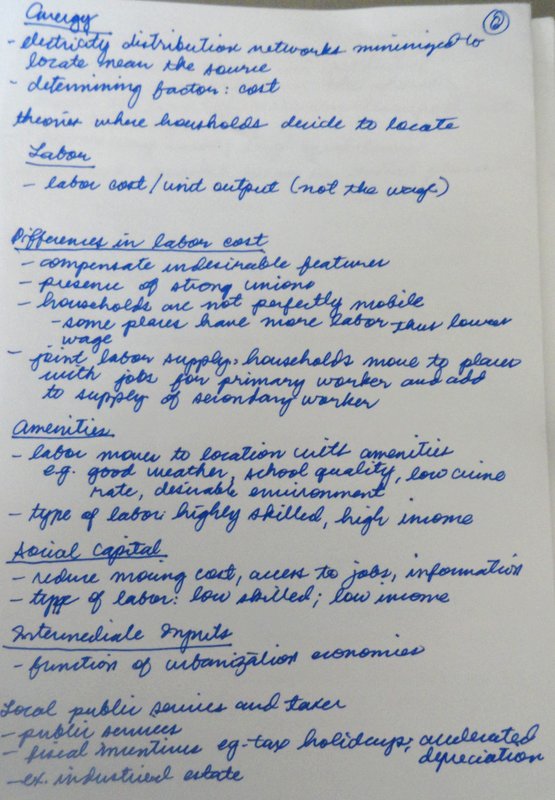 5
Energy
- electricity distribution networks minimized to
locate near the source
- determining factor: cost
theories where households decide to locate
Labor
- labor cost/unit output (not the wage)
Differences in labor cost
- compensate undesirable features
- presence of strong unions
- households are not perfectly mobile
- some places have more labor thus lower
wage
- joint labor supply: households move to places
with jobs for primary worker and add
to supply of secondary worker
Amenities
- labor moves to location with amenities
e.g. good weather, school quality, low crime
rate, desirable environment
- type of labor: highly skilled, high income
Social Capital
- reduce moving cost, access to jobs, information
- type of labor: low skilled; low income
Intermediate Inputs
- function of urbanization economies
Local public services and taxes
- public services
- fiscal incentives eg. tax holidays; accelerated
depreciation
- ex. industrial estate